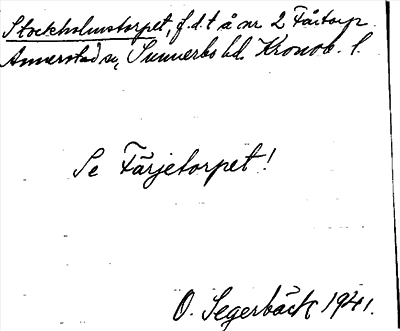 Stockholmstorpet, f.d.t å nr 2 Fårtorp
Annerstad sn, Sunnerbo hd. Kronob. l.
Se Färjetorpet!
O. Segerbäck 1941.